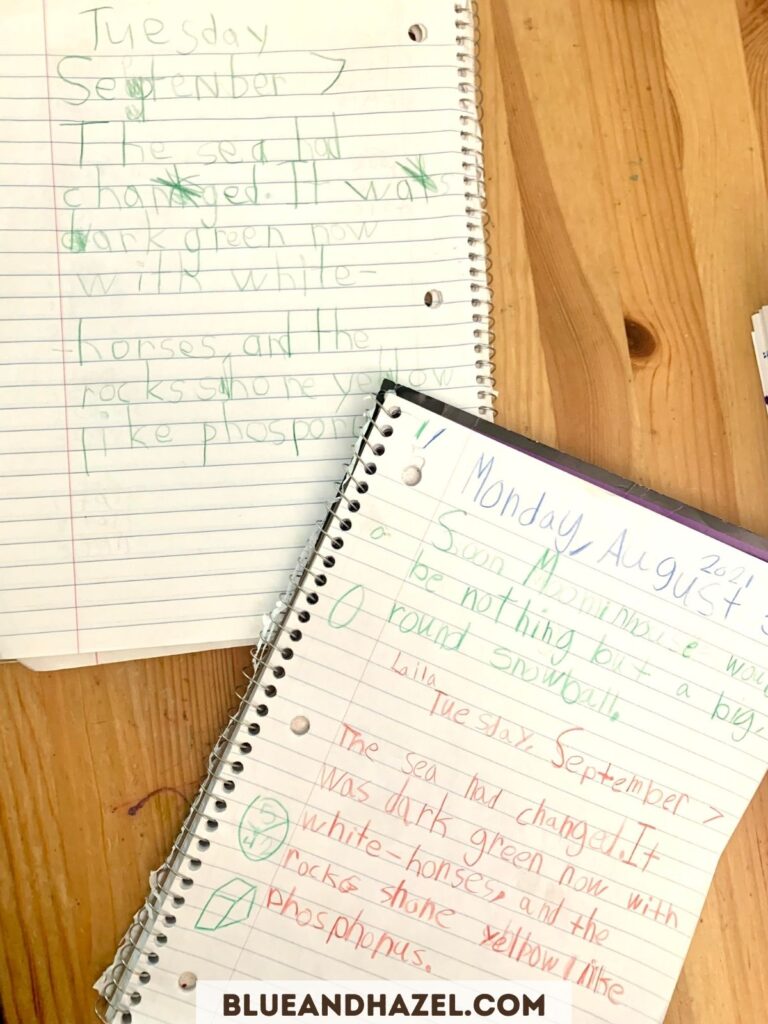 Tuesday
September 7
The sea had
changed. It was
dark green now
with white-
horses, and the
rocks shone yellow
like phospor
Monday, August
2021
Soon Moominhouse
be nothing but a big,
round snowball.
Laila
Tuesday, September 7
The sea had changed. It
was dark green now with
white-horses, and the
rocks shone yellow like
phosphorus.
BLUEANDHAZEL.COM